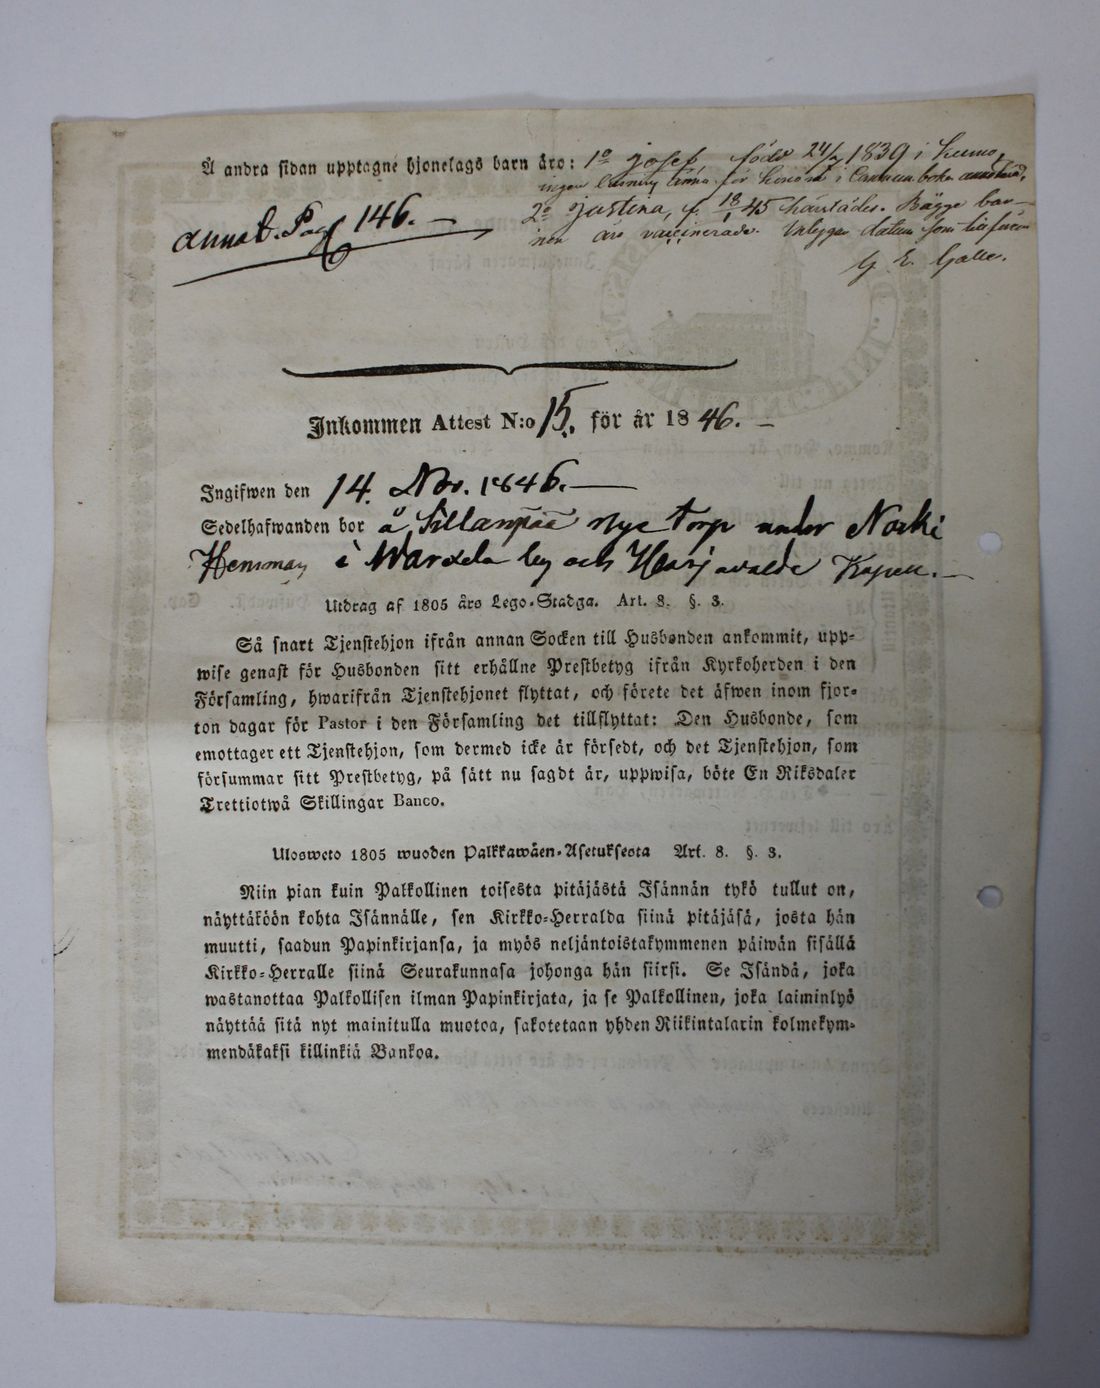 Å andra sidan upptagne hjonelags barn äro: 1º Josef, född 24/2 1839 i Kumo,
ingen i Communionboken annoterad,
2º Justina, f. 18/1 45 härstädes. Bägge bar-
nen äro vaccinerade. datum som
G. E. Gallen.
annot. Pag 146.
Inkommen Attest N:o 15. för år 1846.
Ingifwen den 14. Nov. 1846.
Sedelhafwanden bor å Sillanpää nye torp under Norki
Hemman i Warala by och Harjavalda Kapell.
Utdrag af 1805 års Lego-Stadga. Art. 8. §. 3.
Så snart Tjenstehjon ifrån annan Socken till Husbonden ankommit, upp-
wise genast för Husbonden sitt erhållne Prestbetyg ifrån Kyrkoherden i den
Församling, hwarifrån Tjenstehjonet flyttat, och förete det äfwen inom fjor-
ton dagar för Pastor i den Församling det tillflyttat: Den Husbonde, som
emottager ett Tjenstehjon, som dermed icke är försedt, och det Tjenstehjon, som
försummar sitt Prestbetyg, på sätt nu sagdt är, uppwisa, böte En Riksdaler
Trettiotwå Skillingar Banco.
Ulosweto 1805 wuoden Palkkawäen-Asetuksesta Art. 8. §. 3.
Niin pian kuin Palkollinen toisesta pitäjästä Isännän tykö tullut on,
näyttäköön kohta Isännälle, sen Kirkko-Herralda siinä pitäjäsä, josta hän
muutti, saadun Papinkirjansa, ja myös neljäntoistakymmenen päiwän sisällä
Kirkko-Herralle siinä Seurakunnasa johonga hän siirsi. Se Isändä, joka
wastanottaa Palkollisen ilman Papinkirjata, ja se Palkollinen, joka laiminlyö
näyttää sitä nyt mainitulla muotoa, sakotetaan yhden Riikintalarin kolmekym-
mendäkaksi killinkiä Bankoa.